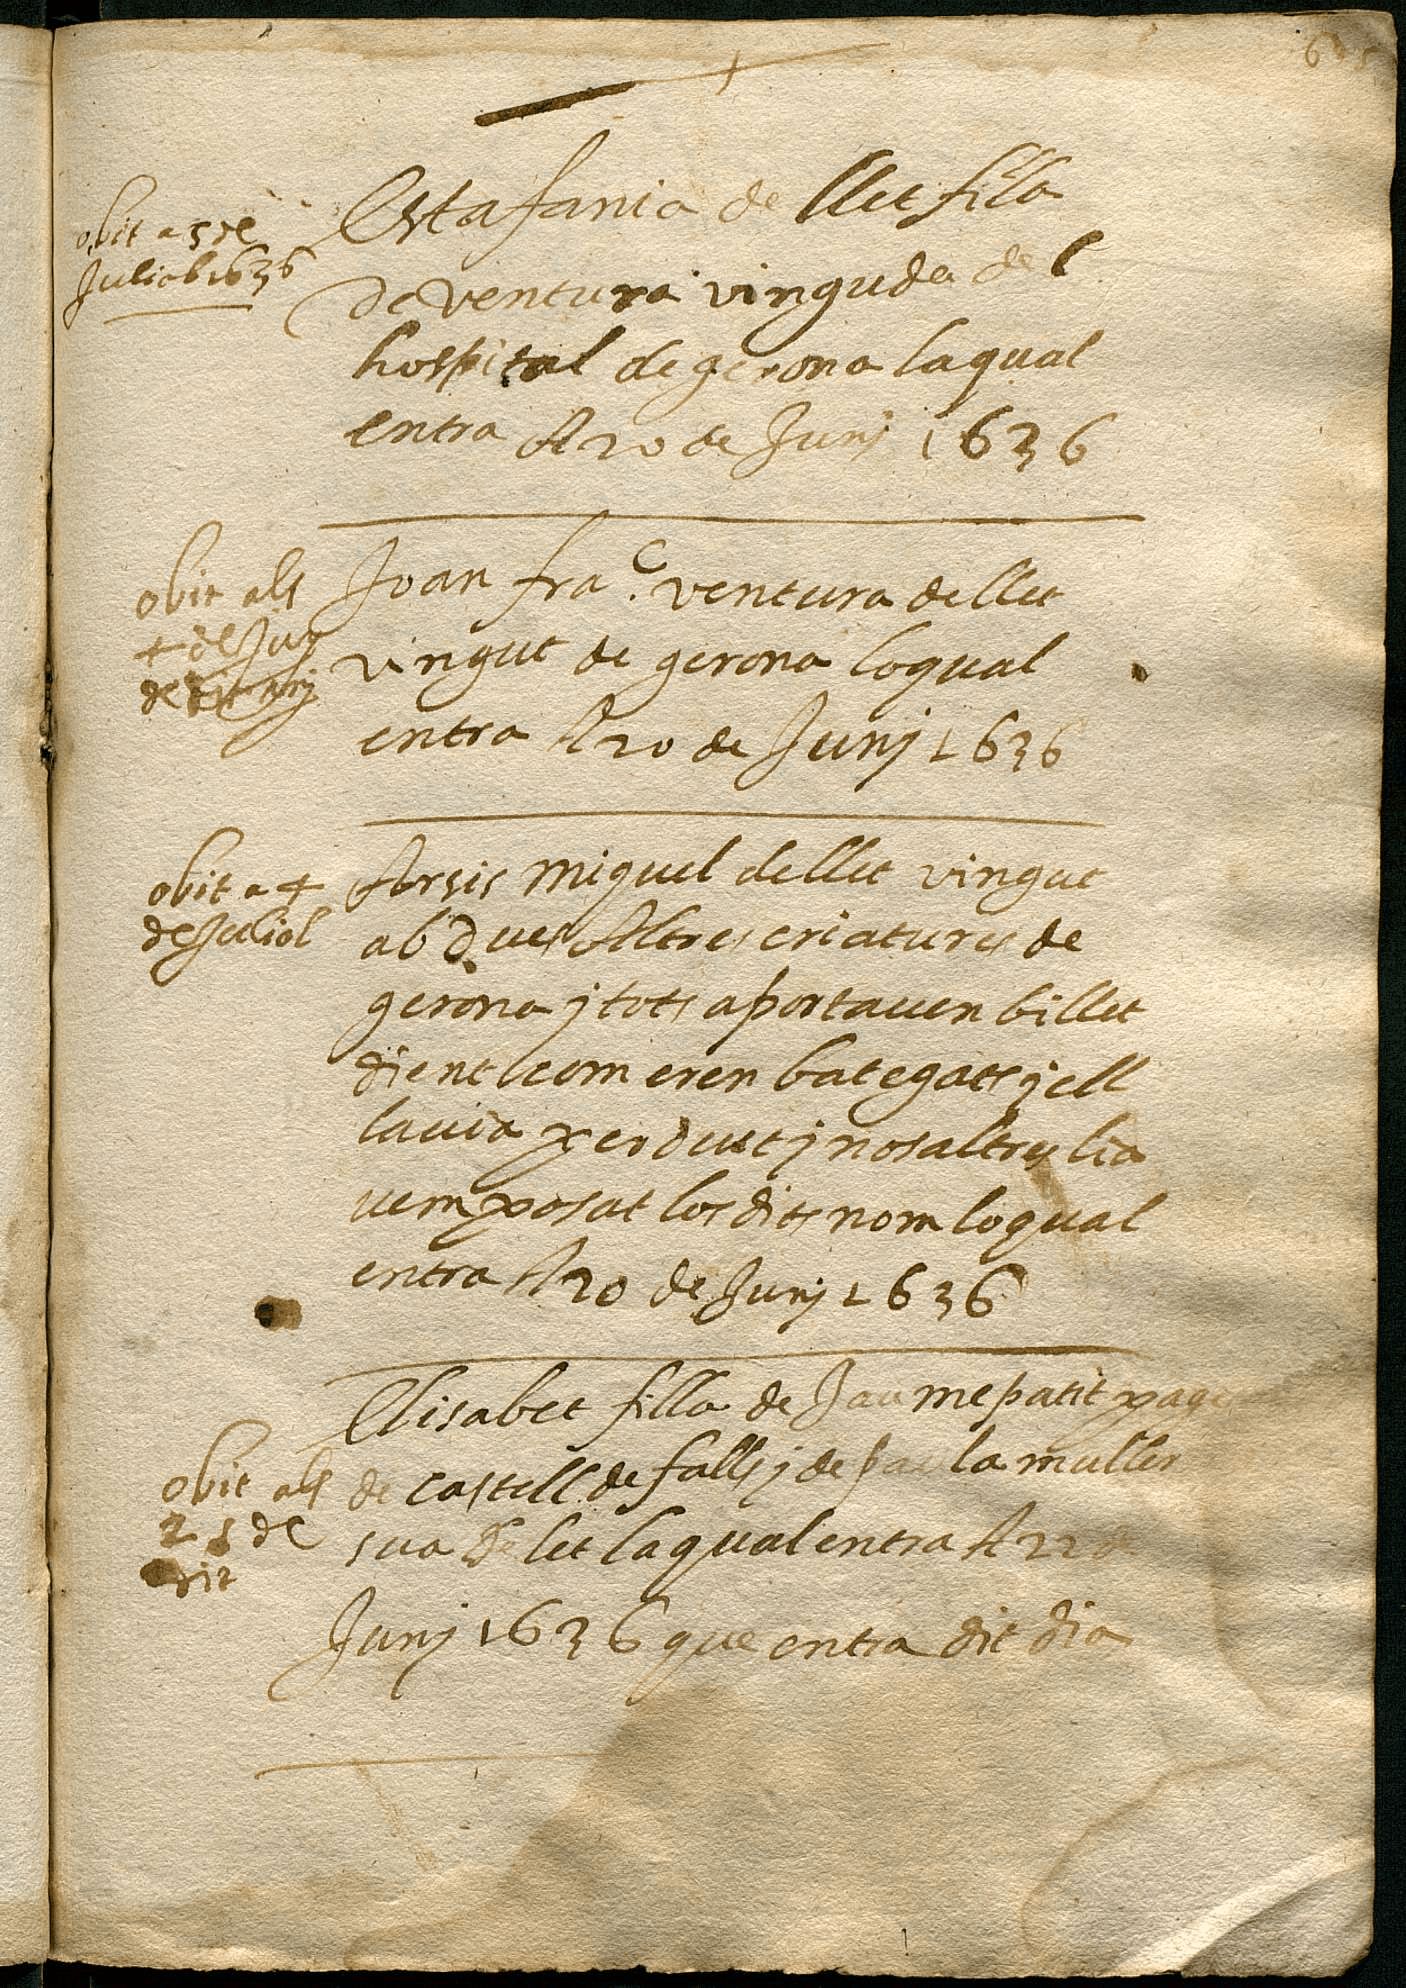 obit a 5 de
Juliol 1636
Estafania de llet filla
de ventura vinguda del
hospital de gerona laqual
entra A 20 de Junj 1636
obit als
4 de
Joan fra.c ventura de llet
vingut de gerona loqual
entra A 20 de Junj 1636
obit a 4
de Juliol
Arsis Miquel de llet vingut
ab dues Altres criatures de
gerona j tots aportauen billet
dient com eren bategats j ell
lauia perdut j nosaltres lia
uem posat los dits nom loqual
entra A 20 de Junj 1636
obit als
25 de
dit
Elisabet filla de Jaume patit pages
de castell de falls j de paula muller
sua de let laqual entra A 22 d
Junj 1636 que entra dit dia